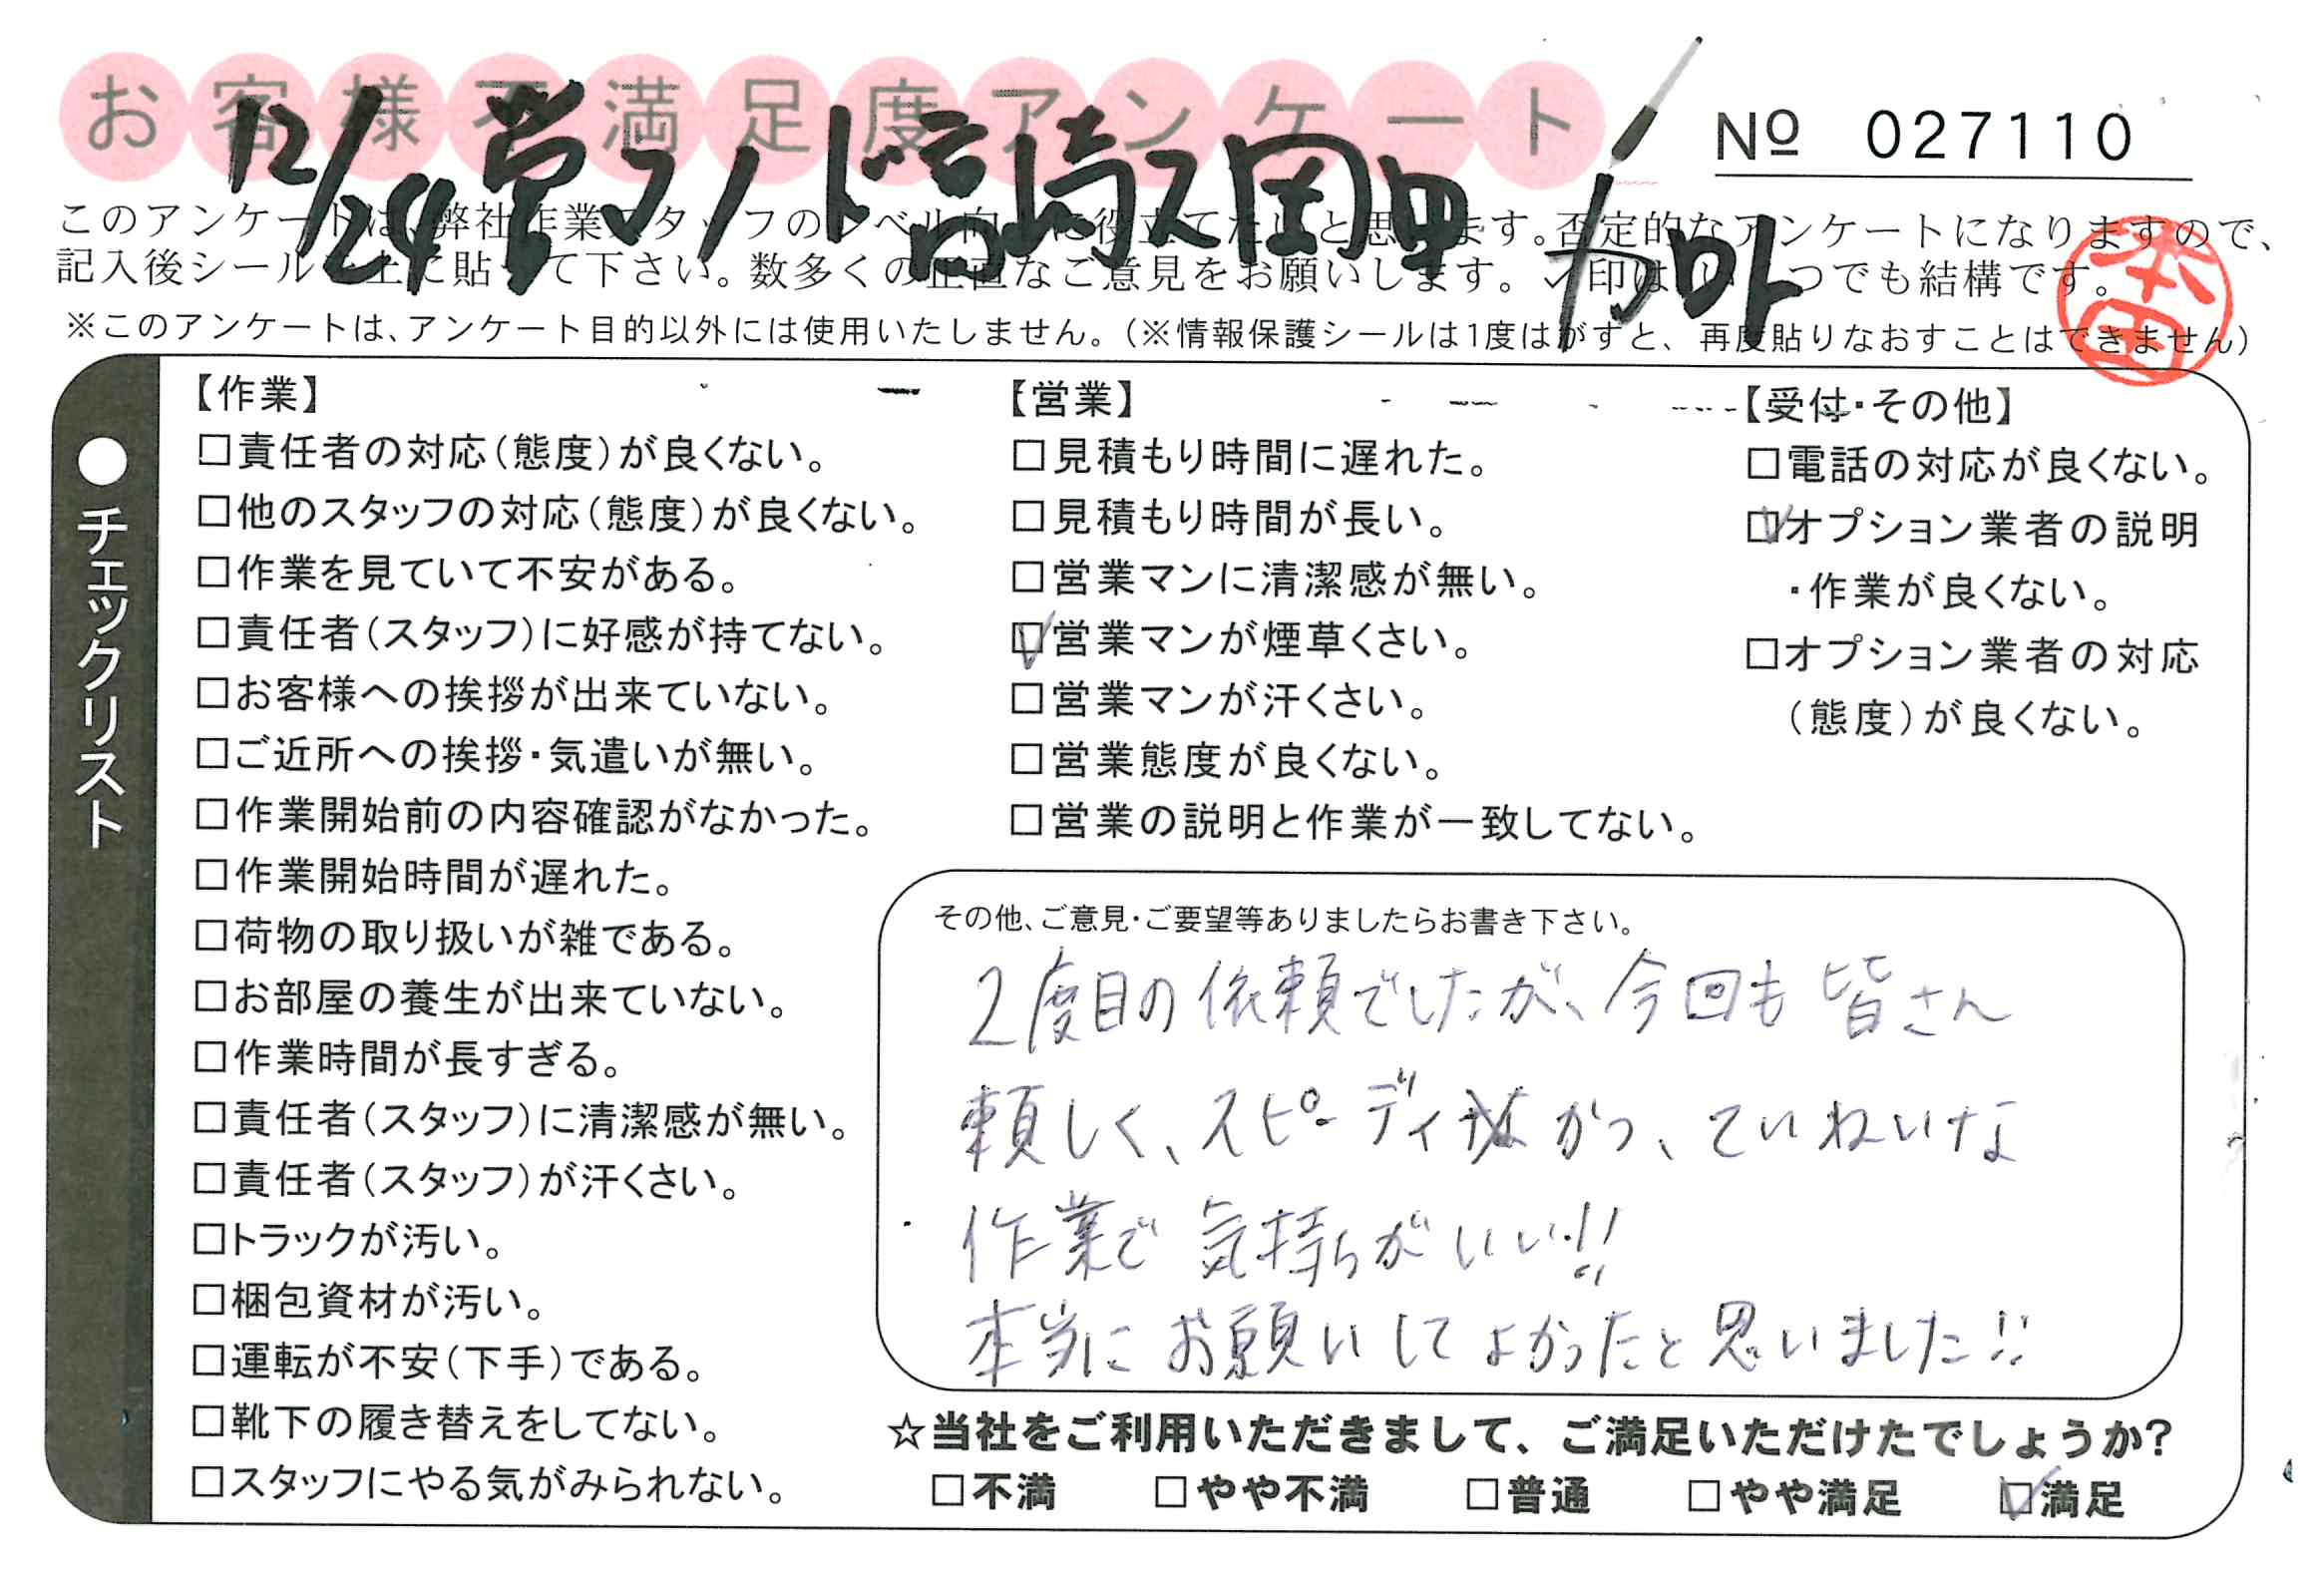 お客様不満足度アンケート
№ 027110
12/24
このアンケートは、弊社作業スタッフのレベル向上に役立てたいと思います。否定的なアンケートになりますので、
記入後シールを上に貼って下さい。数多くの正直なご意見をお願いします。✓印はいくつでも結構です。
※このアンケートは、アンケート目的以外には使用いたしません。（※情報保護シールは1度はがすと、再度貼りなおすことはできません）
本田
●チェックリスト
【作業】
□責任者の対応（態度）が良くない。
□他のスタッフの対応（態度）が良くない。
□作業を見ていて不安がある。
□責任者（スタッフ）に好感が持てない。
□お客様への挨拶が出来ていない。
□ご近所への挨拶・気遣いが無い。
□作業開始前の内容確認がなかった。
□作業開始時間が遅れた。
□荷物の取り扱いが雑である。
□お部屋の養生が出来ていない。
□作業時間が長すぎる。
□責任者（スタッフ）に清潔感が無い。
□責任者（スタッフ）が汗くさい。
□トラックが汚い。
□梱包資材が汚い。
□運転が不安（下手）である。
□靴下の履き替えをしてない。
□スタッフにやる気がみられない。
【営業】
□見積もり時間に遅れた。
□見積もり時間が長い。
□営業マンに清潔感が無い。
☑営業マンが煙草くさい。
□営業マンが汗くさい。
□営業態度が良くない。
□営業の説明と作業が一致してない。
【受付・その他】
□電話の対応が良くない。
☑オプション業者の説明
・作業が良くない。
□オプション業者の対応
（態度）が良くない。
その他、ご意見・ご要望等ありましたらお書き下さい。
2度目の依頼でしたが、今回も皆さん
頼しく、スピーディなかつ、ていねいな
作業で気持ちがいい!!
本当にお願いしてよかったと思いました!!
☆当社をご利用いただきまして、ご満足いただけたでしょうか?
□不満 □やや不満 □普通 □やや満足 ☑満足